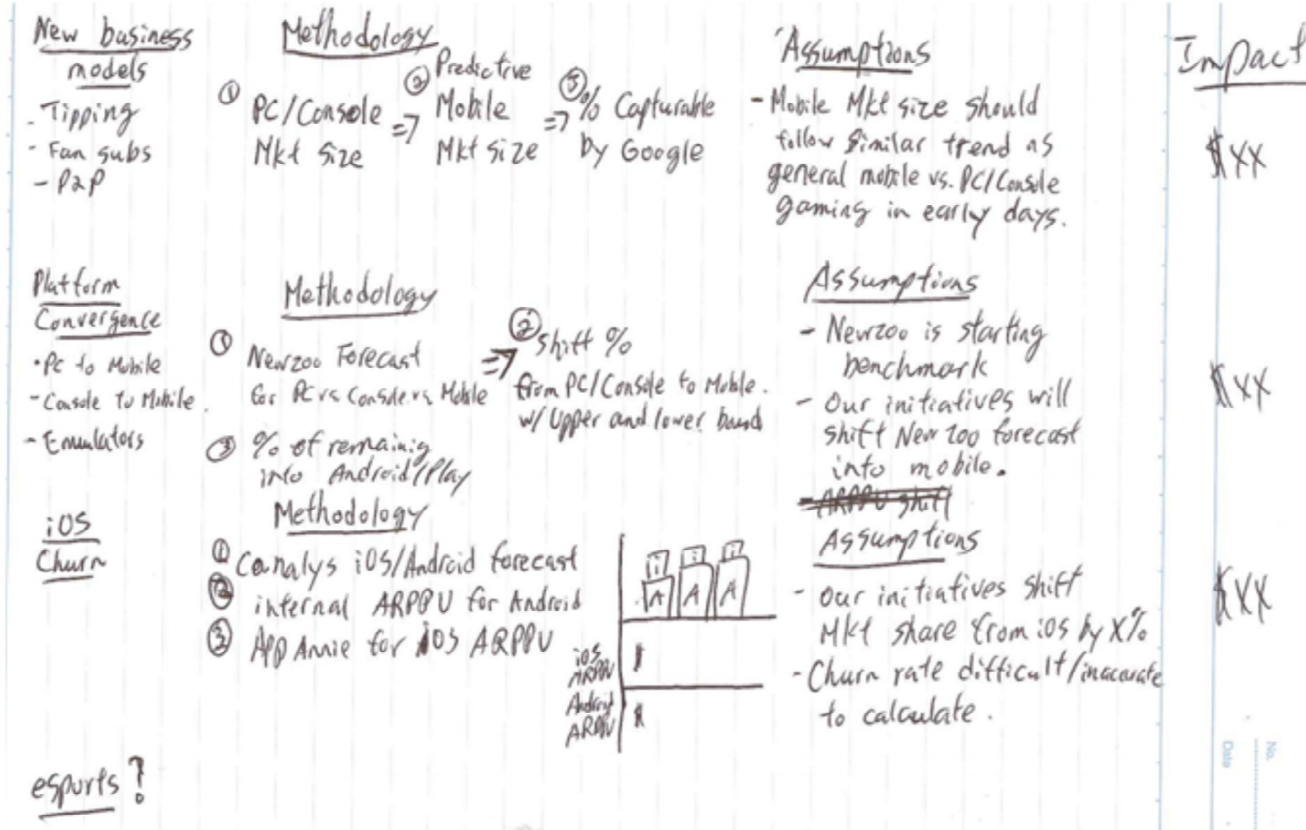 New business
models
- Tipping
- Fan subs
- P2P
Methodology
① PC/Console
Mkt Size
=> ② Predictive
Mobile
Mkt Size
=> ③ % Capturable
by Google
Assumptions
- Mobile Mkt size should
follow similar trend as
general mobile vs. PC/Console
gaming in early days.
Impact
$XX
Platform
Convergence
• PC to Mobile
- Console to Mobile
- Emulators
Methodology
① Newzoo Forecast
for PC vs Console vs Mobile
=> ② Shift %
from PC/Console to Mobile.
w/ Upper and lower bound
③ % of remainig
into Android/Play
Assumptions
- Newzoo is starting
benchmark
- Our initiatives will
shift New Zoo forecast
into mobile.
- ARPPU shift
$XX
iOS
Churn
Methodology
① Canalys iOS/Android forecast
② internal ARPPU for Android
③ App Annie for iOS ARPPU
i i i
A A A
iOS
ARPPU
Android
ARPPU
Assumptions
- Our initiatives shift
Mkt share from iOS by X%
- Churn rate difficult/inaccurate
to calculate.
$XX
esports?
No.
Date